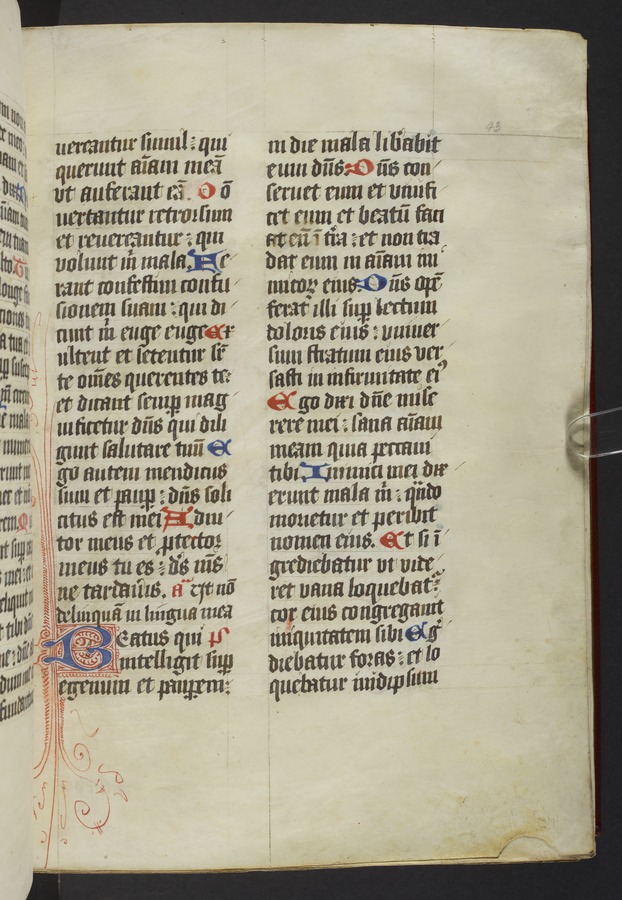 43
uereantur simul : qui
querunt aīam meā
vt auferant eā. Co͞
uertantur retrorsum
et reuereantur : qui
volunt m̄ mala. Fe
rant confestim confu
sionem suam : qui di
cunt m̄ euge euge Ex
ultent et letentur sr̄
te om̄es querentes te:
et dicant semꝑ mag
nificetur dn̄s qui dili
gunt salutare tuū E
go autem mendicus
sum et pauꝑ : dn̄s soli
citus est mei Adiu
tor meus et ꝓtector
meus tu es : ds̄ ms̄
ne tardaūis. a͞ Vt nō
delinquā in lingua mea
Beatus qui ps
intelligit suꝑ
egenum et pauꝑem:
in die mala lib̄abit
eum dn̄s: Dn̄s con
seruet eum et viuifi
cet eum et beatū faci
at eū ī tr̄a : et non tra
dat eum in aīam ini
micoꝝ eius. Dn̄s opē
ferat illi suꝑ lectum
doloris eius : vniuer
sum stratum eius ver
sasti in infirmitate eiꝰ
Ego dixi dn̄e mise
rere mei : sana aīam
meam quia peccaui
tibi. Inimici mei dix
erunt mala m̄ : qn̄do
morietur et peribit
nomen eius. Et si ī
grediebatur vt vide
ret vana loquebat᷑:
cor eius congregauit
iniquitatem sibi Eḡ
diebatur foras : et lo
quebatur inidipsum